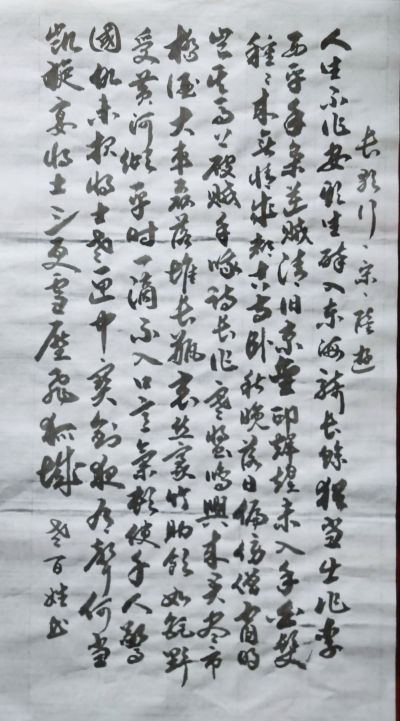 长歌行、宋、陸遊
人生不作安期生醉入东海骑长鲸猶当出作李
西平手枭逆贼清旧京金印辉煌未入手白髮
種種来無情成都古寺卧秋晚落日偏傍僧窗明
岂其马上破贼手哦诗长作寒螿鸣興来买尽市
橋酒大車磊落堆长瓶哀丝豪竹助剧饮如鉅野
受黄河倾平时一滴不入口意氣顿使千人驚
國仇未报壮士老匣中宝剑夜有声何当
凯旋宴将士三更雪壓飛狐城 老百姓书